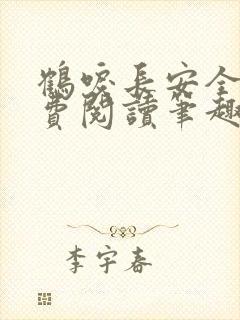 鶴唳長安全
費閱讀筆趣
李宇春